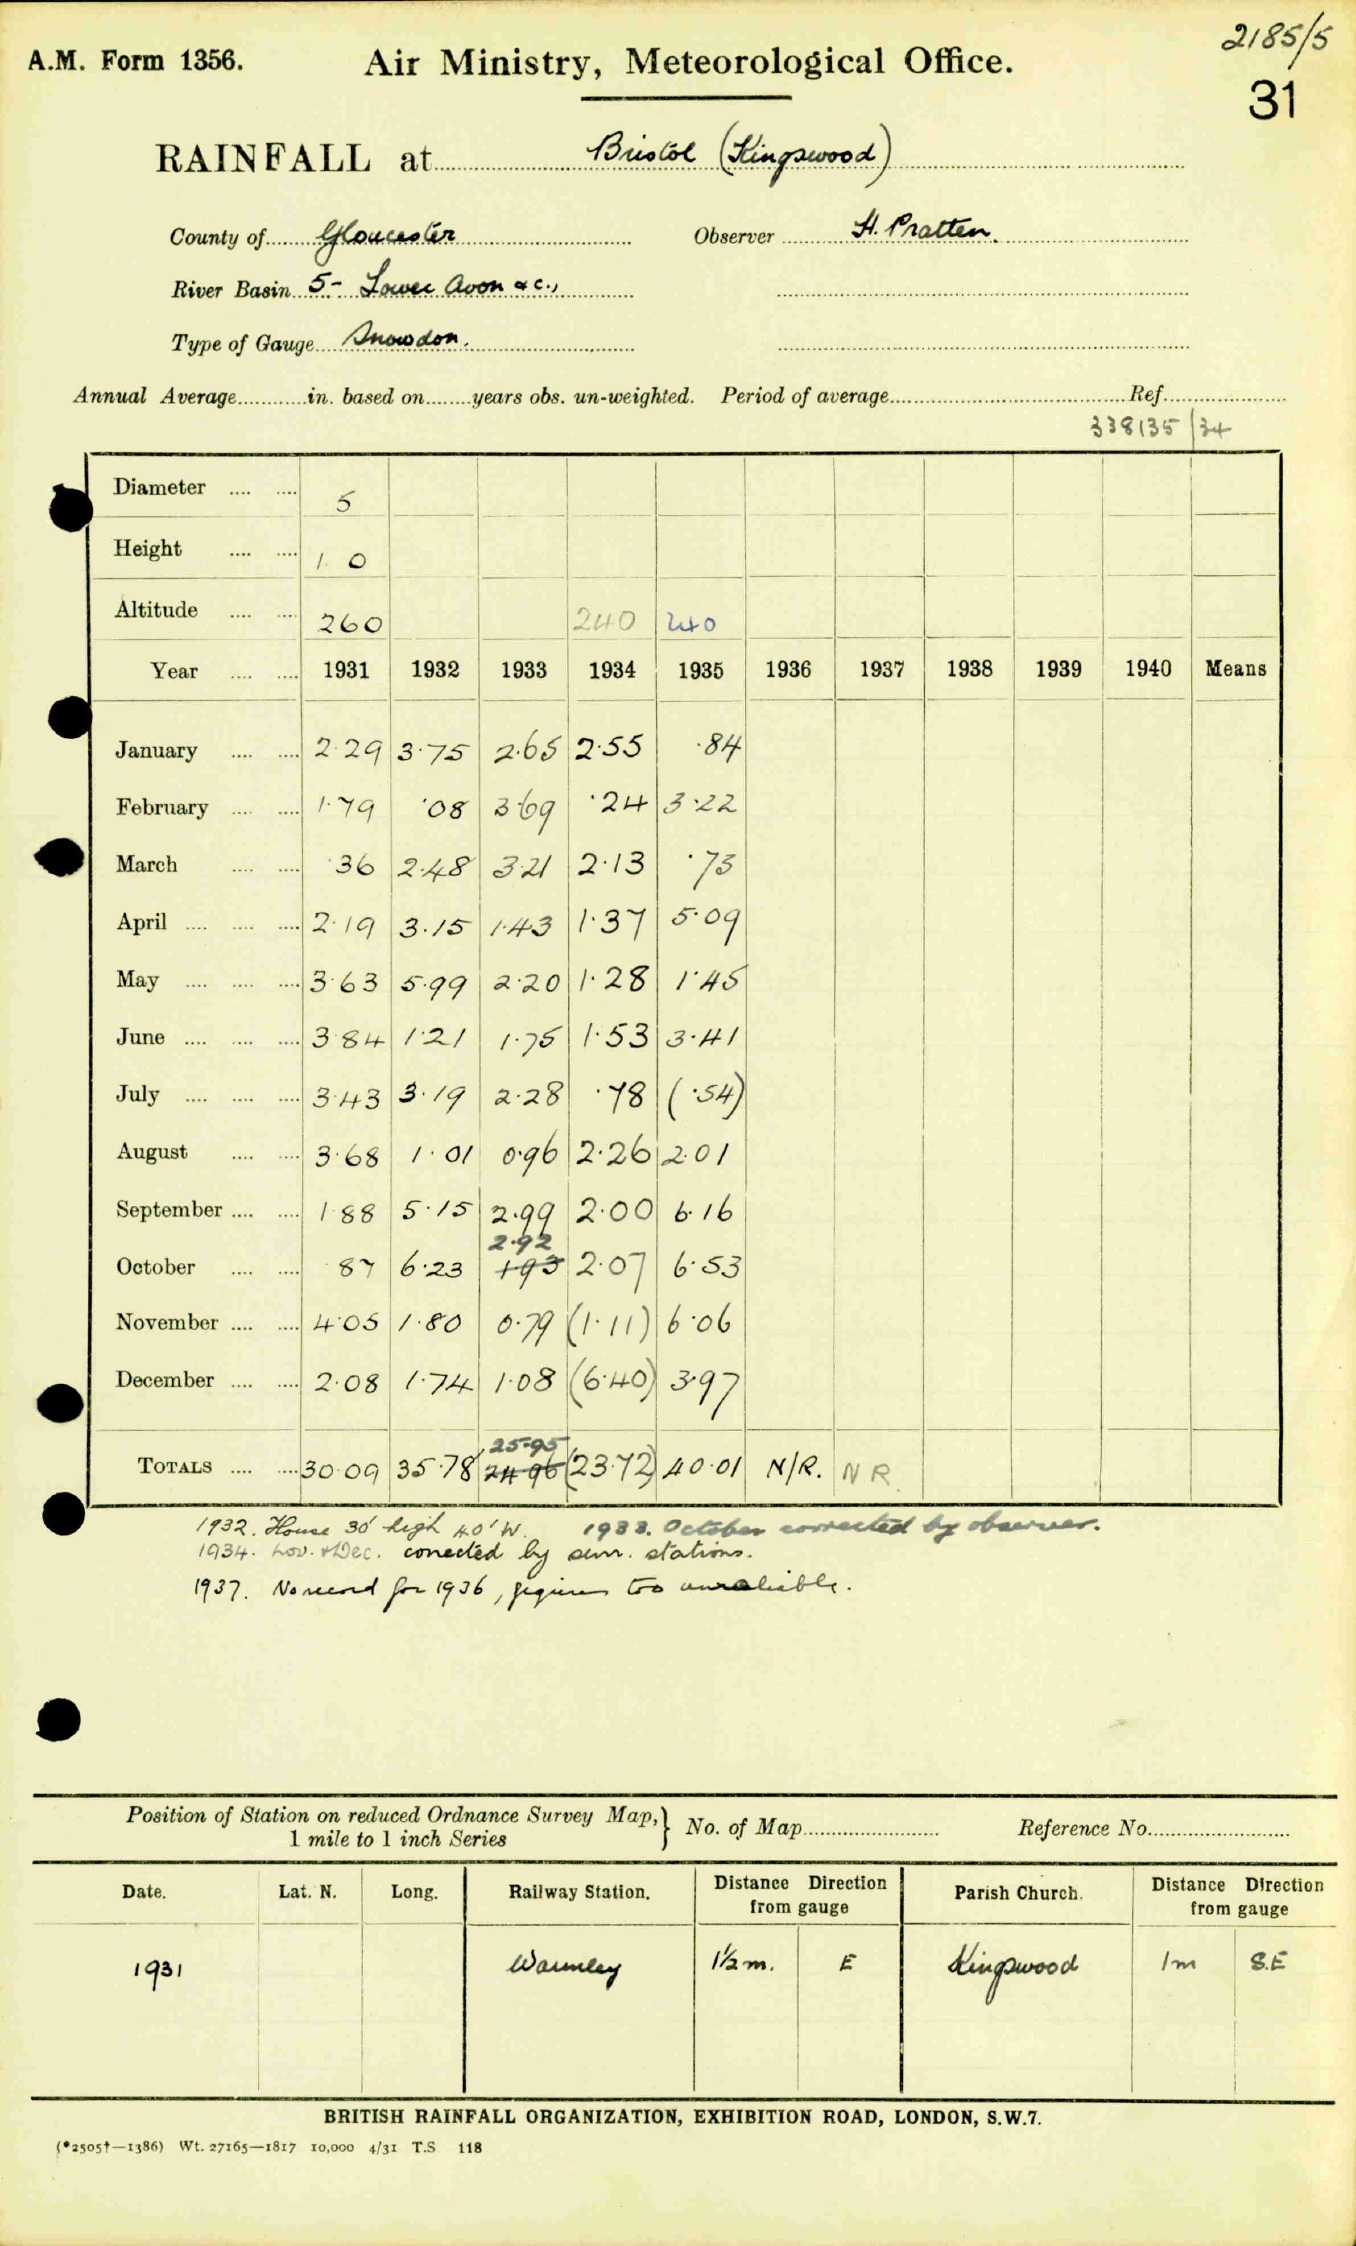 2185/5
A.M. Form 1356. Air Ministry, Meteorological Office.
31
RAINFALL at Bristol (Kingswood)
County of Gloucester Observer H. Pratten.
River Basin 5- Lower Avon & c.,
Type of Gauge Snowdon.
Annual Average............in. based on........years obs. un-weighted. Period of average........................................Ref.....................
338135/34
Diameter .... .... 5
Height .... .... 1 0
Altitude .... .... 260 240 240
Year .... .... 1931 1932 1933 1934 1935 1936 1937 1938 1939 1940 Means
January .... .... 2.29 3.75 2.65 2.55 .84
February .... .... 1.79 .08 3.69 .24 3.22
March .... .... .36 2.48 3.21 2.13 .73
April .... .... .... 2.19 3.15 1.43 1.37 5.09
May .... .... .... 3.63 5.99 2.20 1.28 1.45
June .... .... .... 3.84 1.21 1.75 1.53 3.41
July .... .... .... 3.43 3.19 2.28 .78 (.54)
August .... .... 3.68 1.01 0.96 2.26 2.01
September .... .... 1.88 5.15 2.99 2.00 6.16
2.92
October .... .... .87 6.23 1.93 2.07 6.53
November .... .... 4.05 1.80 0.79 (1.11) 6.06
December .... .... 2.08 1.74 1.08 (6.40) 3.97
25.95
TOTALS .... .... 30.09 35.78 24.96 (23.72) 40.01 N/R. N R
1932. House 30' high 40' W. 1933. October corrected by observer.
1934. Nov. & Dec. corrected by surr. stations.
1937. No record for 1936, figures too unreliable.
Position of Station on reduced Ordnance Survey Map, } No. of Map........................ Reference No.........................
1 mile to 1 inch Series
Date. Lat. N. Long. Railway Station. Distance Direction from gauge Parish Church. Distance Direction from gauge
1931 Warmley 1½ m. E Kingswood 1m S.E
BRITISH RAINFALL ORGANIZATION, EXHIBITION ROAD, LONDON, S.W.7.
(*2505†—1386) Wt. 27165—1817 10,000 4/31 T.S 118